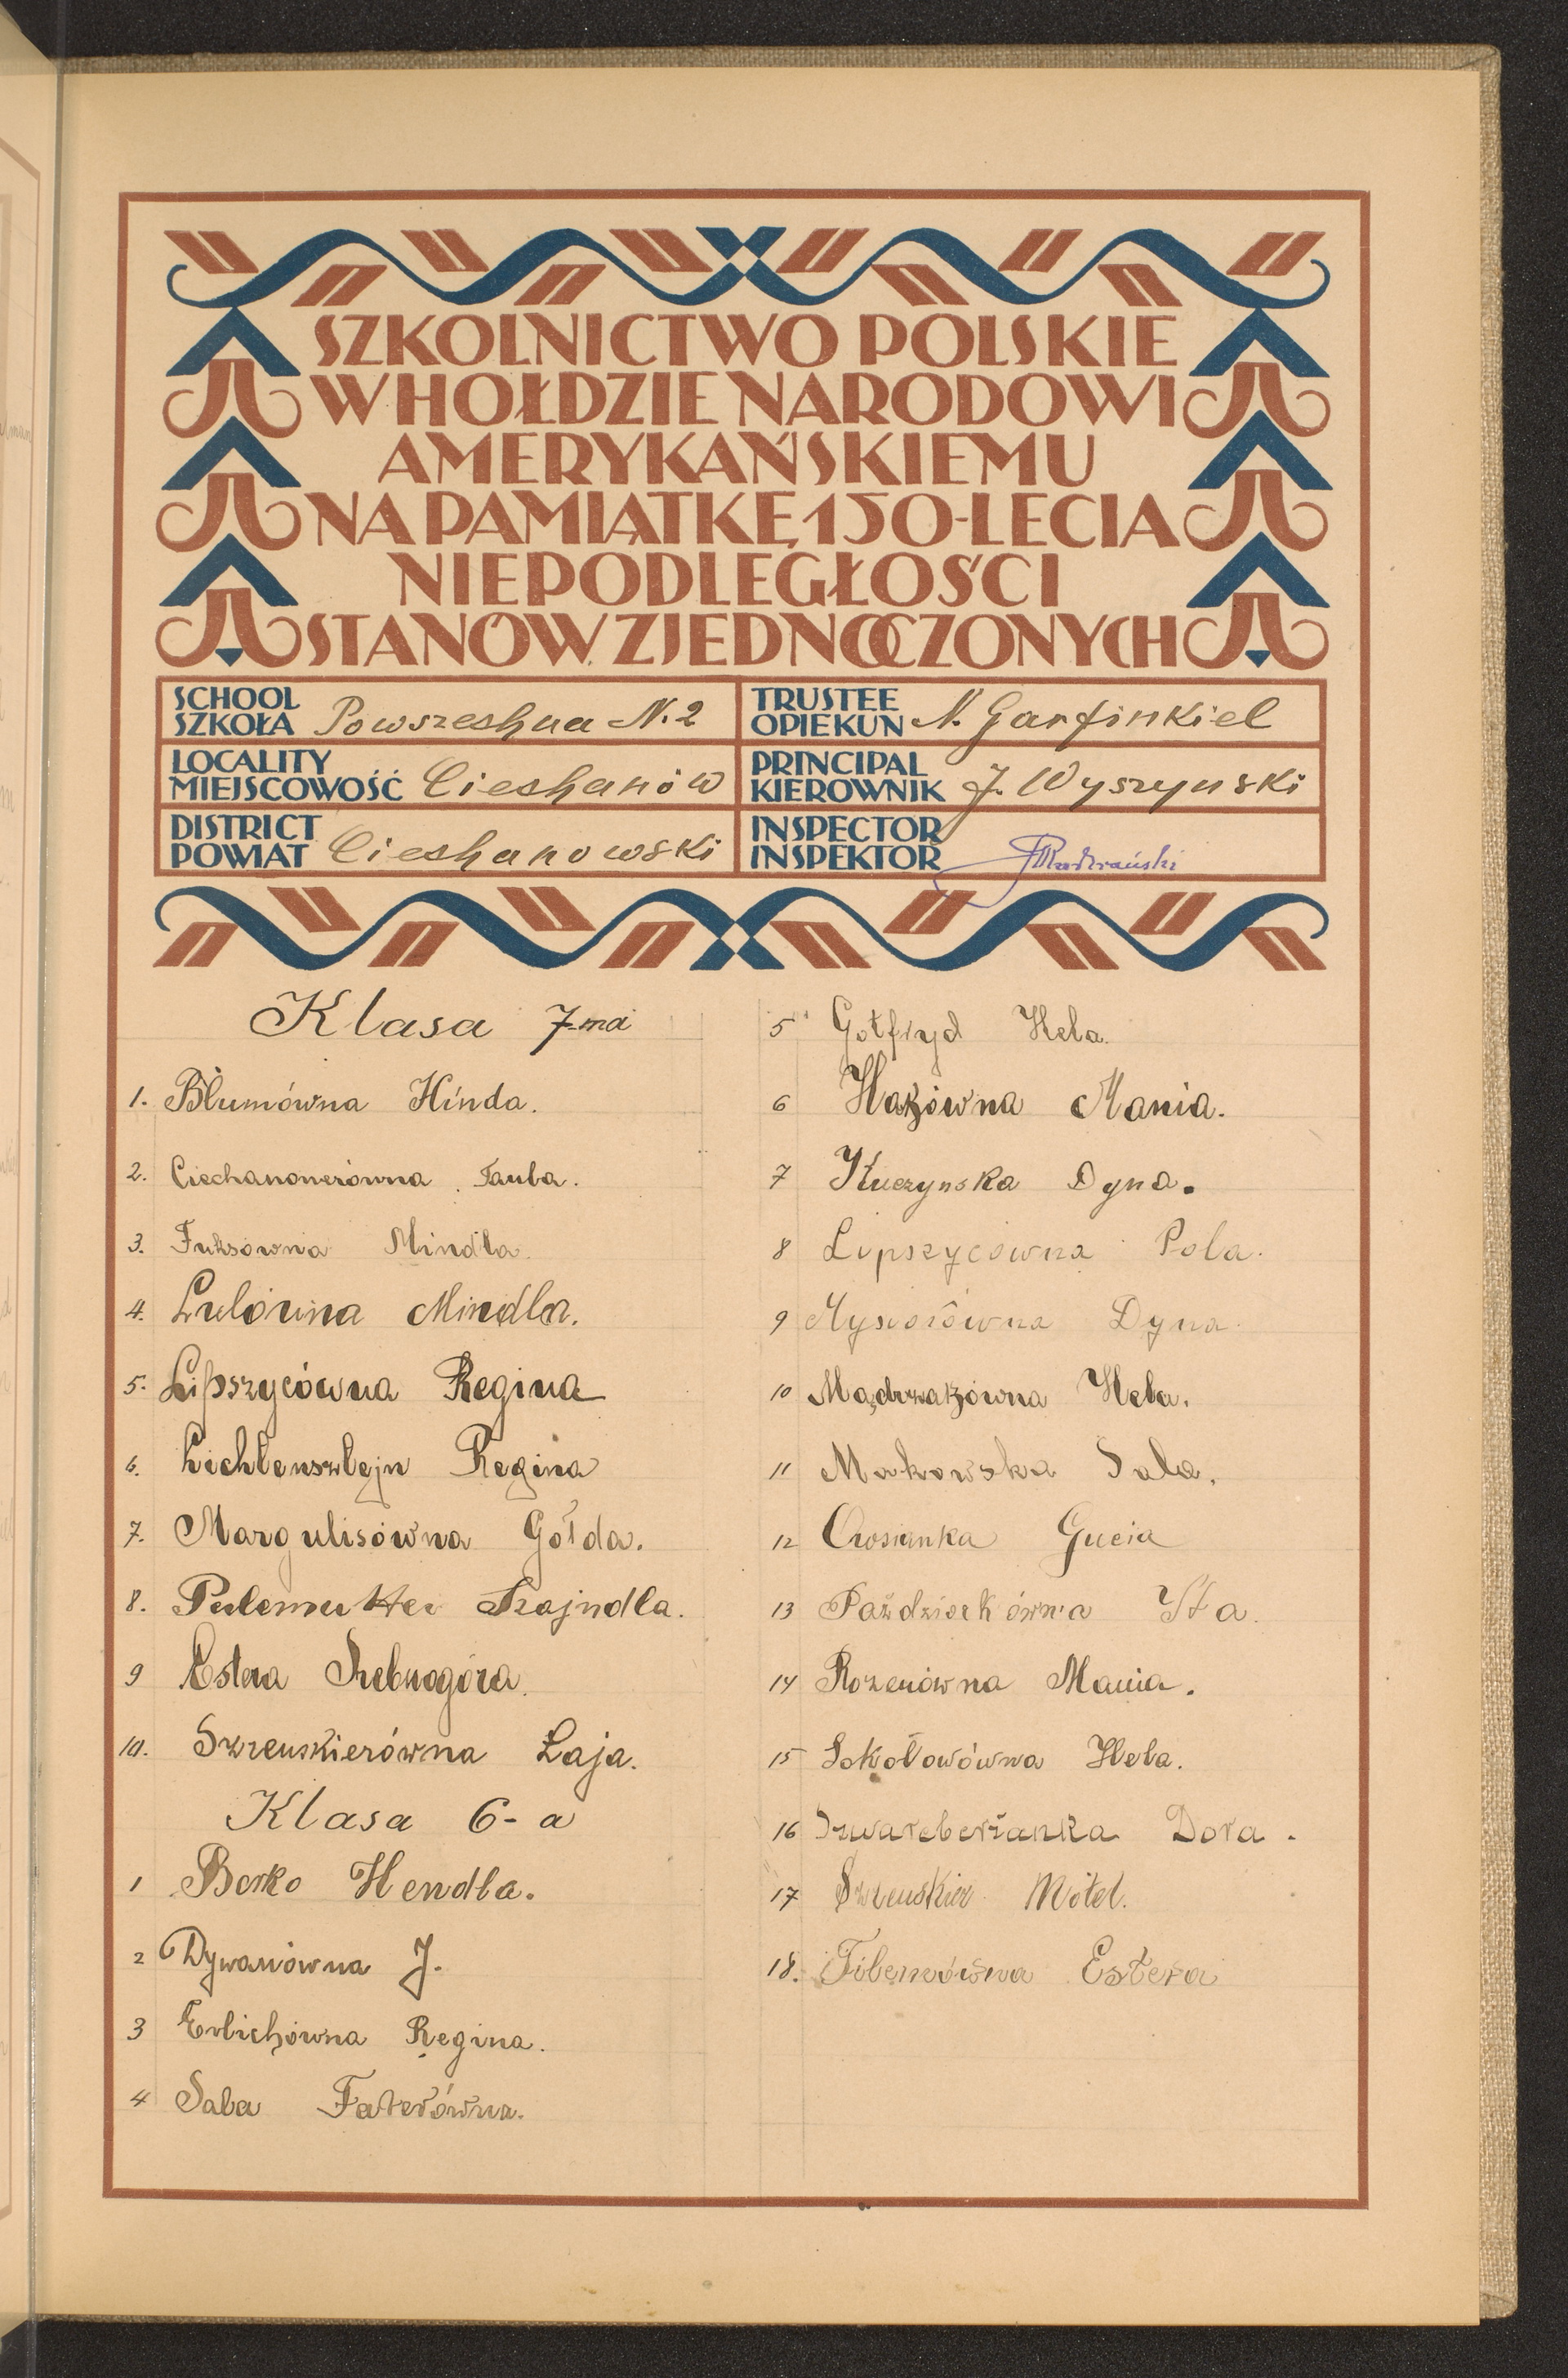 SZKOLNICTWO POLSKIE
W HOŁDZIE NARODOWI
AMERYKAŃSKIEMU
NA PAMIĄTKĘ 150-LECIA
NIEPODLEGŁOŚCI
STANÓW ZJEDNOCZONYCH
SCHOOL
SZKOŁA Powszechna N. 2
LOCALITY
MIEJSCOWOŚĆ Ciechanów
DISTRICT
POWIAT Ciechanowski
TRUSTEE
OPIEKUN N. Garfinkiel
PRINCIPAL
KIEROWNIK J. Wyszynski
INSPECTOR
INSPEKTOR
Klasa 7-ma
1. Blumówna Hinda.
2. Ciechanowerówna Tauba.
3. Fuksówna Mindla.
4. Mindla.
5. Lipszycówna Regina
6. Lichtensztejn Regina
7. Margulisówna Gołda.
8. Perlemutter Szajndla.
9 Estera Srebrnogóra.
10. Szreńskierówna Łaja.
Klasa 6-a
1 Borko Hendla.
2 Dywanówna J.
3 Erlichówna Regina.
4 Sala Faterówna.
5 Gotfryd Hela.
6 Hazówna Mania.
7 Kuczynska Dyna.
8 Lipszycówna Pola.
9 Mysiorówna Dyna.
10 Mądrzakówna Hela.
11 Makowska Sala.
12 Owsianka Gucia
13 Paździorkówna Ita.
14 Rozenówna Mania.
15 Sokołowówna Hela.
16 Szwarcberżanka Dora.
17 Szreńskier Motel.
18. Estera